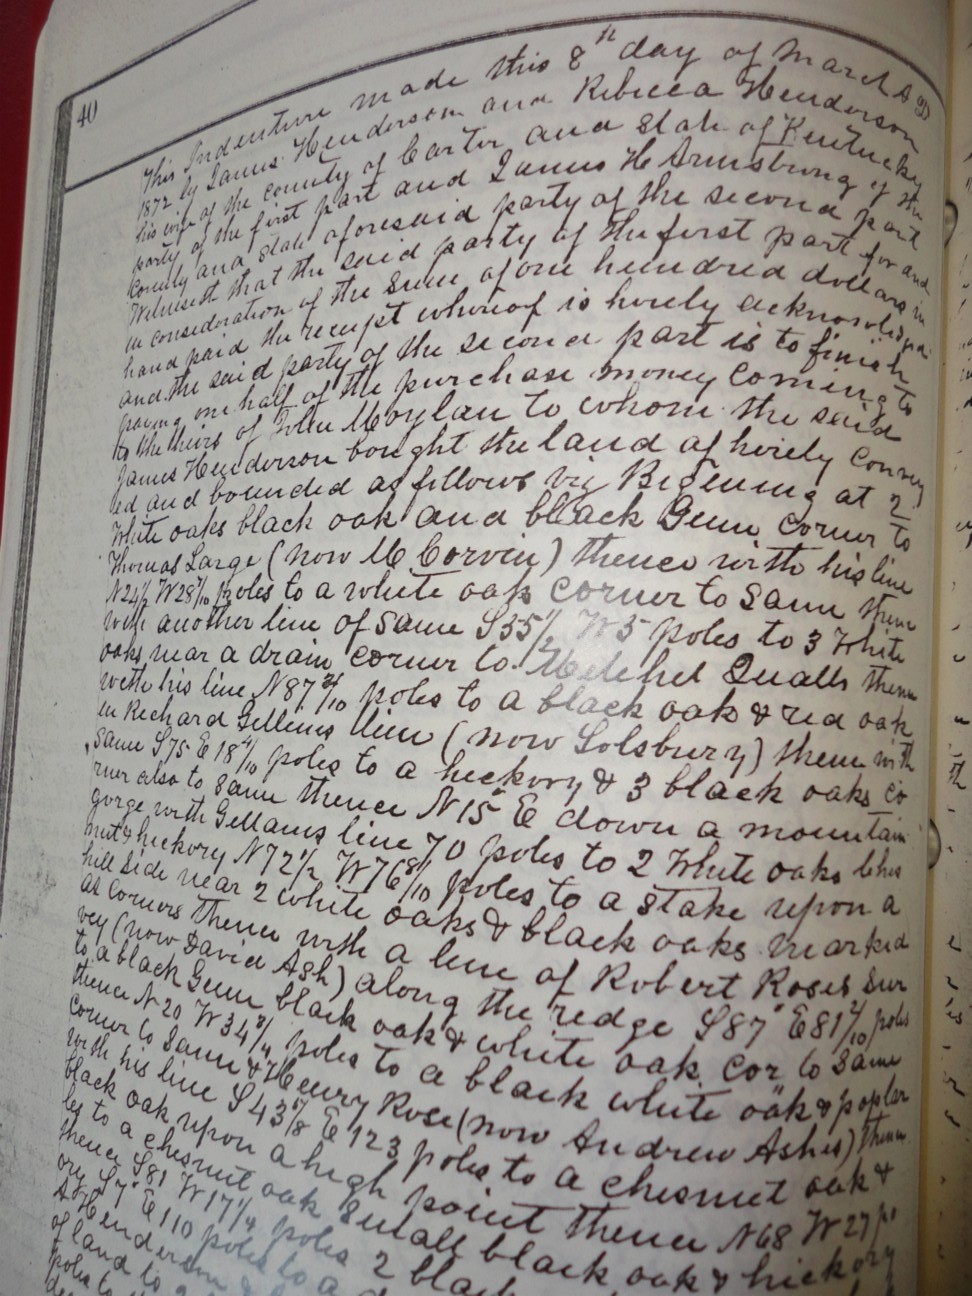 40
This Indenture made this 8th day of March A D
1872 by James Henderson and Rebecca Henderson
his wife of the county of Carter and State of Kentucky
party of the first part and James H Armstrong of the
county and State aforesaid party of the second part
Witnesseth that the said party of the first part for and
in consideration of the Sum of one hundred dollars in
hand paid the receipt whereof is hereby acknowledged
and the said party of the second part is to finish
paying one half of the purchase money coming to
to the heirs of John Moylan to whom the said
James Henderson bought the land of hereby convey
ed and bounded as follows viz Begening at 2
White oaks black oak and black Gum corner to
Thomas Large (now M Corvin) thence with his line
N24½ W28 7/10 poles to a white oak corner to Same thence
with another line of Same S35½ W5 poles to 3 White
oaks near a drain corner to Metchel Qualls thence
with his line N87 poles to a black oak & red oak
in Richard Gellems line (now Solsbury) thence with
Same S75 E 18 4/10 poles to a hickory & 3 black oaks co
rner also to Same thence N15° E down a mountain
gorge with Gellams line 70 poles to 2 White oaks ches
nut & hickory N72½ W76 8/10 poles to a stake upon a
hill side near 2 white oaks & black oaks marked
as corners thence with a line of Robert Roses Sur
vey (now David Ash) along the redge S87° E81 poles
to a black Gum black oak & white oak cor to Same
thence N20 W34 3/4 poles to a black white oak & poplar
corner to Same & Henry Rose (now Andrew Ashes) thence
with his line S43 E 123 poles to a chesnut oak &
black oak upon a high point thence N68 W27 po
les to a chesnut oak Small black oak & hickory
thence S81 W17¼ poles 2 black
ory S7° E110 poles to a
A Henderson
of land to
poles to